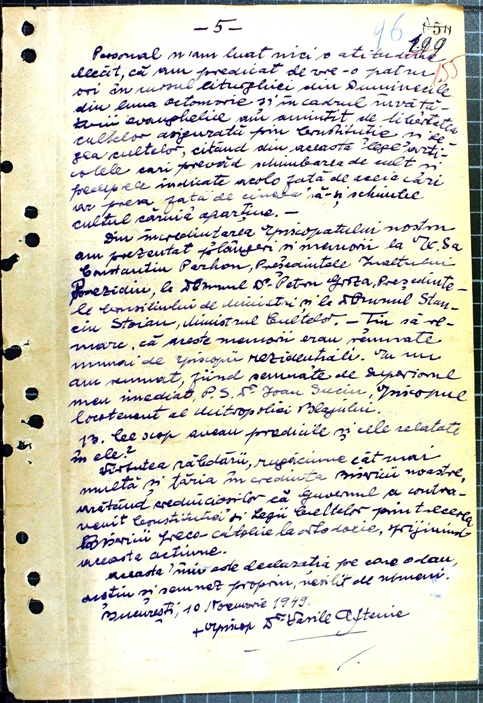 - 5 -
96
199
155
Personal n'am luat nici o atitudine
decât, că am predicat de vre-o patru
ori în cursul liturghiei din Duminecile
din luna octomvrie și în cadrul învăță-
turii evanghelice am amintit de libertatea
cultelor asigurată prin Constituție și le-
gea cultelor, citând din aceasta lege arti-
colele cari prevăd schimbarea de cult și
indicate acolo față de aceia cari
ar vrea, să-și schimbe
cultul căruia aparține. -
Din încredințarea Episcopatului nostru
am prezentat plângeri și memorii la
Constantin Parhon, Președintele Înaltului
Prezidiu, la Domnul Dr. Petru Groza, Președinte-
le Consiliului de Miniștri și la Domnul Stan-
ciu Stoian, Ministrul Cultelor. - Țin să re-
marc, că aceste memorii erau semnate
numai de Episcopii rezidențiali. Eu nu
am semnat, fiind semnate de superiorul
meu imediat P. S. Dr Ioan Suciu, Episcopul
locotenent al Mitropoliei Blajului.
13. Ce scop aveau predicile și cele relatate
în ele?
Virtutea răbdării, rugăciune cât mai
multă și tăria în credința Bisericii noastre,
arătând credincioșilor că Guvernul a contra-
venit Constituției și Legii Cultelor prin trecerea
Bisericii greco-catolice la ortodoxie, sprijinind
aceasta acțiune.
Aceasta îmi este declarația pe care o dau,
susțin și semnez propriu, nesilit de nimeni.
București, 10 Noemvrie 1949.
+ Episcop Dr. Vasile Aftenie